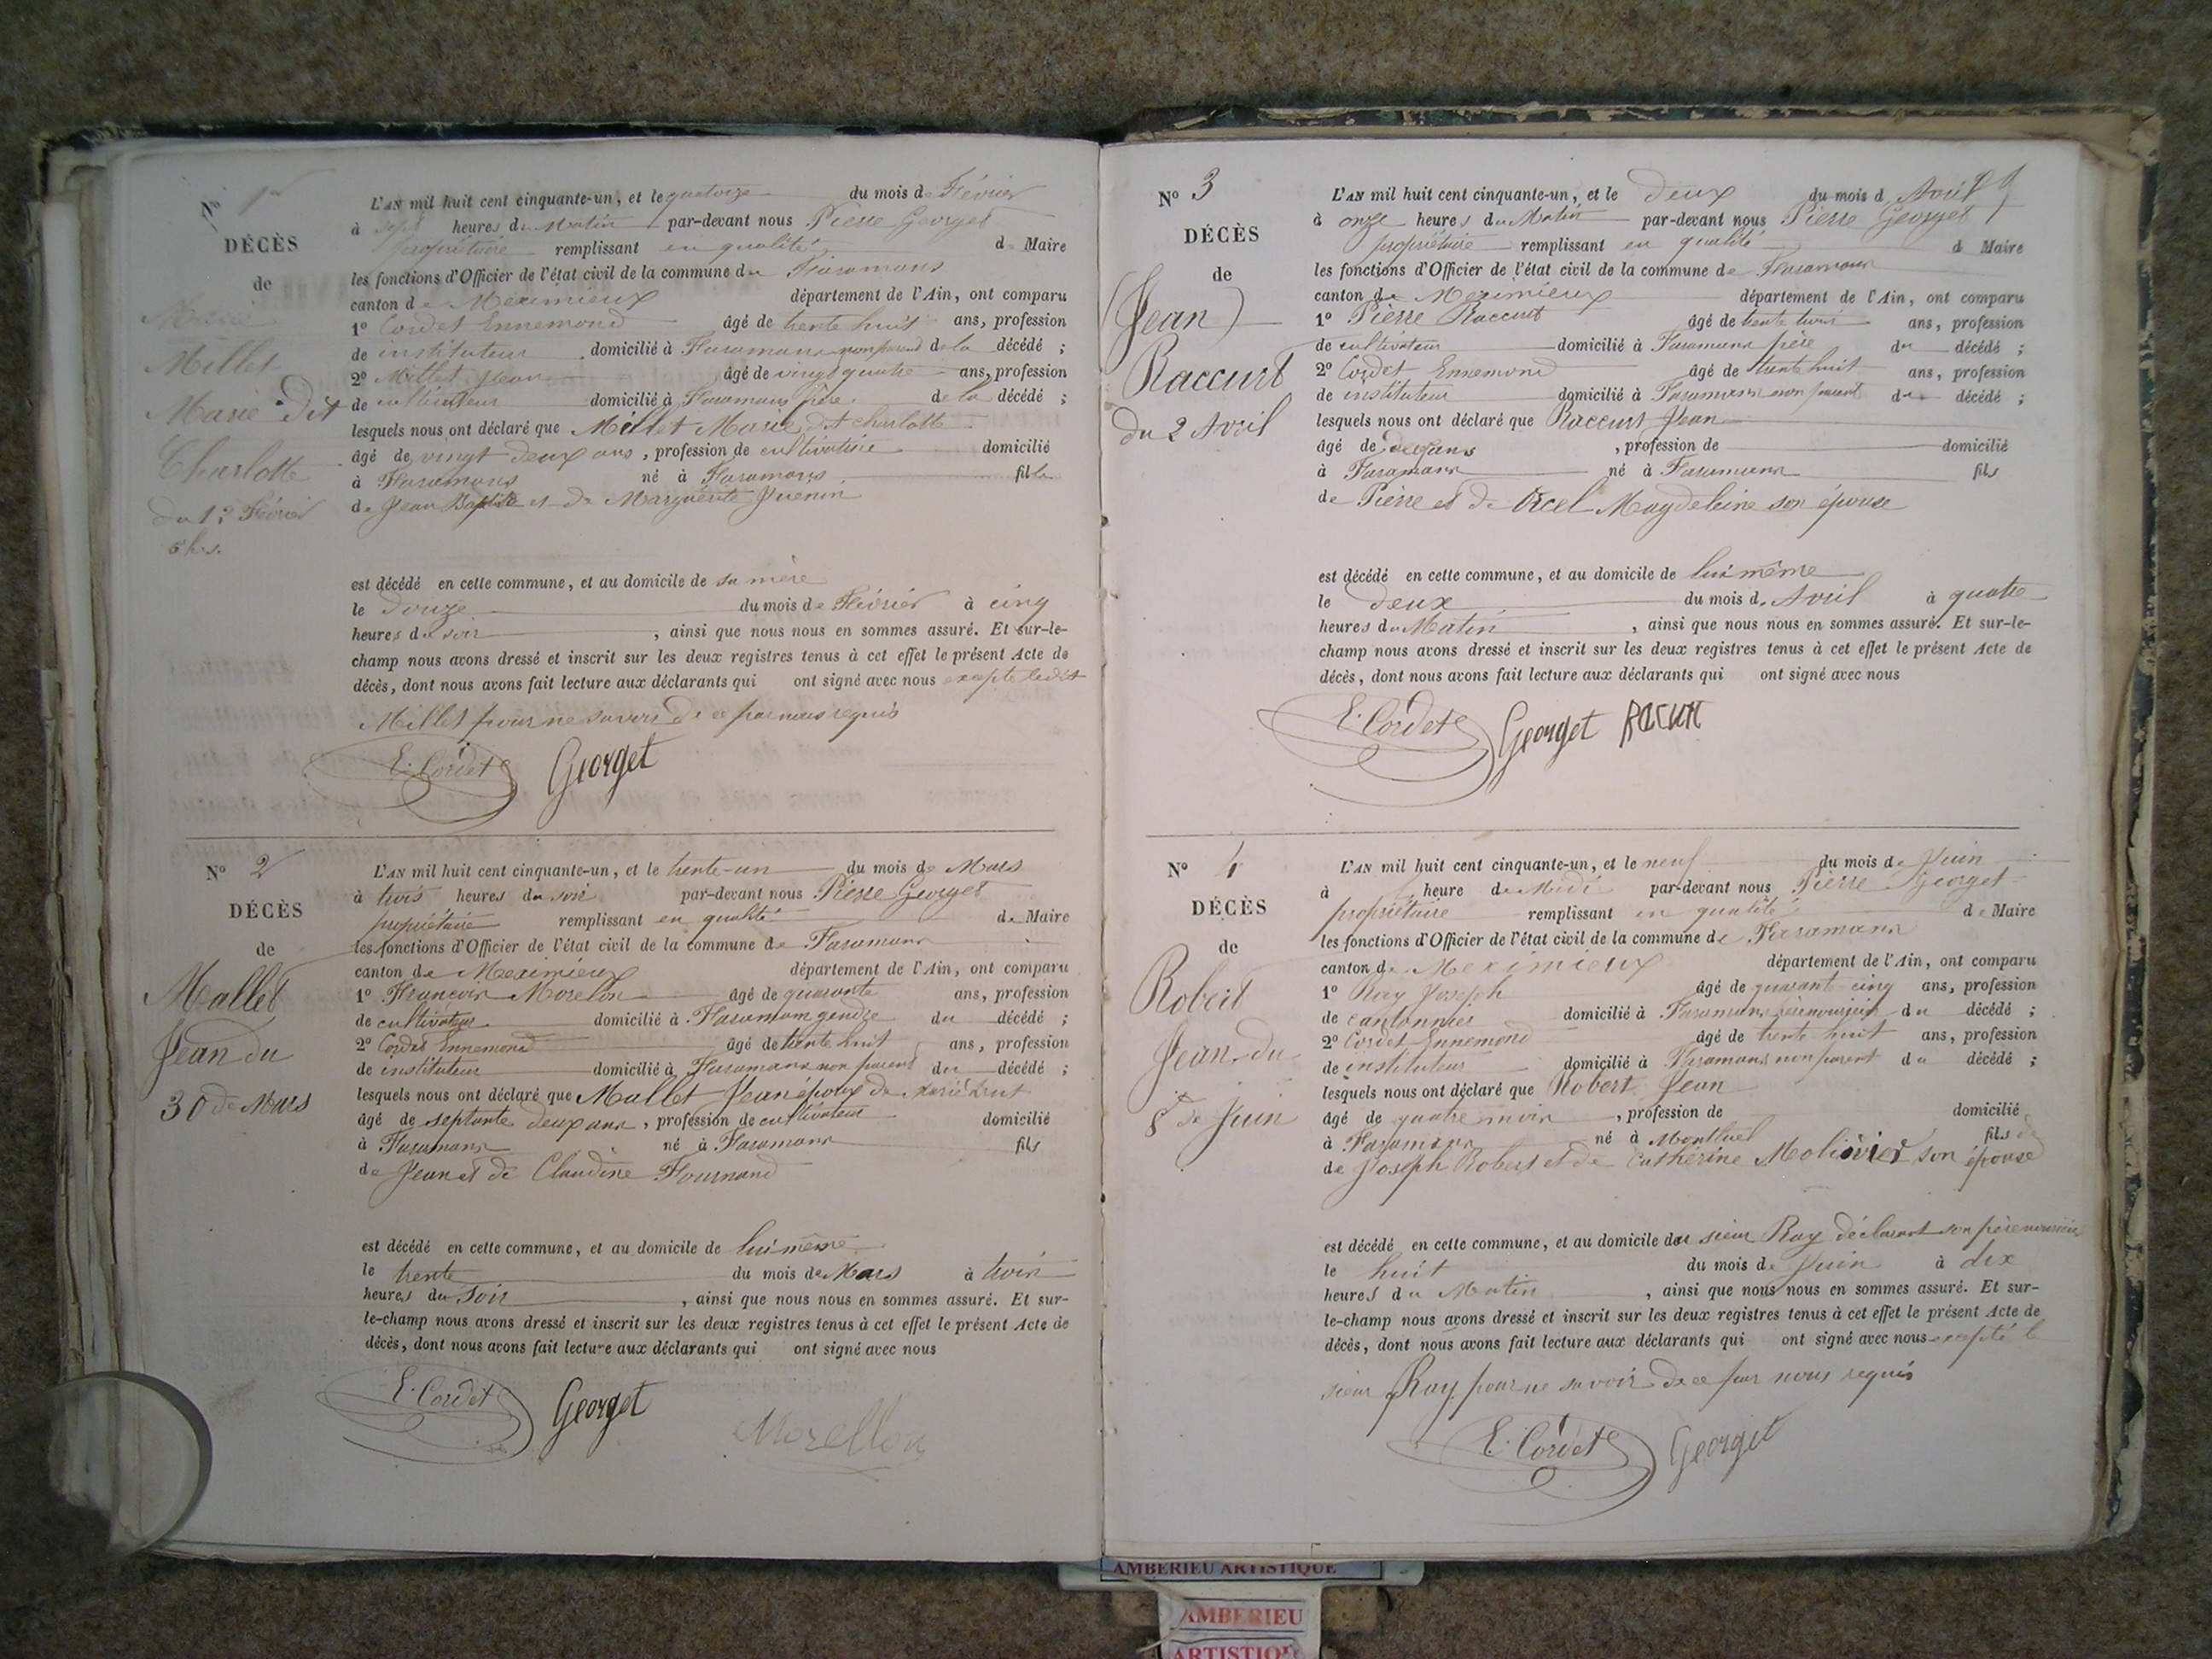 N° 1er
DÉCÈS
de
Marie
Millet
Marie dit
Charlotte
du 12 Février
5 h. s.
L'AN mil huit cent cinquante-un, et le quatorze du mois de Février
à sept heures du Matin par-devant nous Pierre Georget
propriétaire remplissant en qualité de Maire
les fonctions d'Officier de l'état civil de la commune de Faramans
canton de Meximieux département de l'Ain, ont comparu
1° Cordet Ennemond âgé de trente huit ans, profession
de instituteur domicilié à Faramans non parent de la décédé ;
2° Millet Jean âgé de vingt quatre ans, profession
de cultivateur domicilié à Faramans frère de la décédé ;
lesquels nous ont déclaré que Millet Marie dit charlotte
âgé de vingt deux ans, profession de cultivatrice domicilié
à Faramans né à Faramans fille
de Jean Baptiste et de Marguerite Juenin
est décédé en cette commune, et au domicile de sa mère
le douze du mois de Février à cinq
heures du soir, ainsi que nous nous en sommes assuré. Et sur-le-
champ nous avons dressé et inscrit sur les deux registres tenus à cet effet le présent Acte de
décès, dont nous avons fait lecture aux déclarants qui ont signé avec nous excepté ledit
Millet pour ne savoir de ce par nous requis
E. Cordet Georget
N° 2
DÉCÈS
de
Mallet
Jean du
30 de Mars
L'AN mil huit cent cinquante-un, et le trente-un du mois de Mars
à trois heures du soir par-devant nous Pierre Georget
propriétaire remplissant en qualité de Maire
les fonctions d'Officier de l'état civil de la commune de Faramans
canton de Meximieux département de l'Ain, ont comparu
1° François Morelon âgé de quarante ans, profession
de cultivateur domicilié à Faramans gendre du décédé ;
2° Cordet Ennemond âgé de trente huit ans, profession
de instituteur domicilié à Faramans non parent du décédé ;
lesquels nous ont déclaré que Mallet Jean époux de Marie
âgé de septante deux ans, profession de cultivateur domicilié
à Faramans né à Faramans fils
de Jean et de Claudine Fournand
est décédé en cette commune, et au domicile de lui même
le trente du mois de Mars à trois
heures du Soir, ainsi que nous nous en sommes assuré. Et sur-
le-champ nous avons dressé et inscrit sur les deux registres tenus à cet effet le présent Acte de
décès, dont nous avons fait lecture aux déclarants qui ont signé avec nous
E. Cordet Georget Morellon
N° 3
DÉCÈS
de
(Jean)
Raccurt
du 2 Avril
L'AN mil huit cent cinquante-un, et le deux du mois d Avril
à onze heures du Matin par-devant nous Pierre Georget
propriétaire remplissant en qualité d Maire
les fonctions d'Officier de l'état civil de la commune de Faramans
canton de Meximieux département de l'Ain, ont comparu
1° Pierre Raccurt âgé de trente trois ans, profession
de cultivateur domicilié à Faramans père du décédé ;
2° Cordet Ennemond âgé de trente huit ans, profession
de instituteur domicilié à Faramans non parent du décédé ;
lesquels nous ont déclaré que Raccurt Jean
âgé de ans, profession de domicilié
à Faramans né à Faramans fils
de Pierre et de Orcel Magdeleine son épouse
est décédé en cette commune, et au domicile de lui même
le deux du mois d'Avril à quatre
heures du Matin, ainsi que nous nous en sommes assuré. Et sur-le-
champ nous avons dressé et inscrit sur les deux registres tenus à cet effet le présent Acte de
décès, dont nous avons fait lecture aux déclarants qui ont signé avec nous
E. Cordet Georget Racurt
N° 4
DÉCÈS
de
Robert
Jean du
8 de Juin
L'AN mil huit cent cinquante-un, et le neuf du mois de Juin
à heure de Midi par-devant nous Pierre Georget
propriétaire remplissant en qualité de Maire
les fonctions d'Officier de l'état civil de la commune de Faramans
canton de Meximieux département de l'Ain, ont comparu
1° Ray Joseph âgé de quarante cinq ans, profession
de cantonnier domicilié à Faramans père nourricier du décédé ;
2° Cordet Ennemond âgé de trente huit ans, profession
de instituteur domicilié à Faramans non parent du décédé ;
lesquels nous ont déclaré que Robert Jean
âgé de quatre mois, profession de domicilié
à Faramans né à Montluel fils de
de Joseph Robert et de Catherine Molissier son épouse
est décédé en cette commune, et au domicile du sieur Ray déclarant son père nourricier
le huit du mois de Juin à dix
heures du Matin, ainsi que nous nous en sommes assuré. Et sur-
le-champ nous avons dressé et inscrit sur les deux registres tenus à cet effet le présent Acte de
décès, dont nous avons fait lecture aux déclarants qui ont signé avec nous excepté le
sieur Ray pour ne savoir de ce par nous requis
E. Cordet Georget
AMBERIEU ARTISTIQUE
AMBERIEU
ARTISTIQU